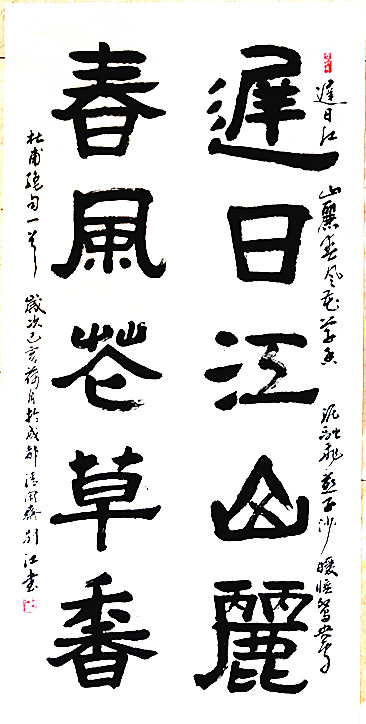 遲日江山麗春風花草香泥融飛燕子沙暖睡鴛鴦
遲日江山麗
春風花草香
杜甫絕句一首 歲次己亥荷月於成都引江書